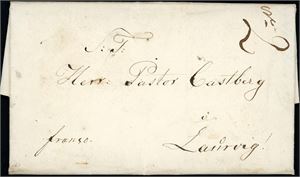 S: T:
Herr: Pastor Castberg
à
Laurvig!
franco.